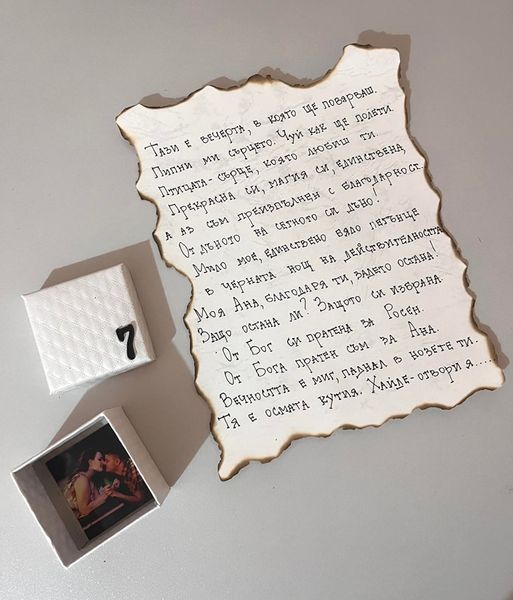 Тази е вечерта, в която ще повярваш.
Пипни ми сърцето. Чуй как ще полети
Птицата-сърце, която любиш ти.
Прекрасна си, магия си, единствена,
а аз съм преизпълнен с благодарност.
От дъното на сетното си дъно!
Мило мое, единствено бяло петънце
в черната нощ на действителността
Моя Ана, благодаря ти, задето остана!
Защо остана ли? Защото си избрана.
От Бог си пратена за Росен.
От Бога пратен съм за Ана.
Вечността е миг, паднал в нозете ти.
Тя е осмата кутия. Хайде-отвори я....
7